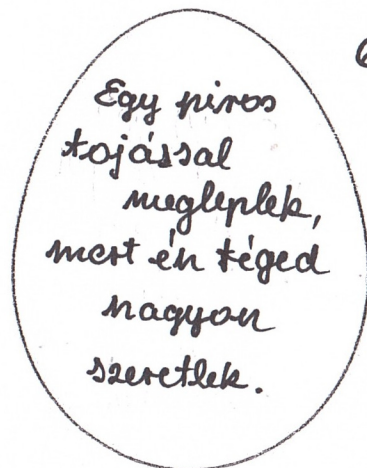 Egy piros
tojással
megleplek,
mert én téged
nagyon
szeretlek.